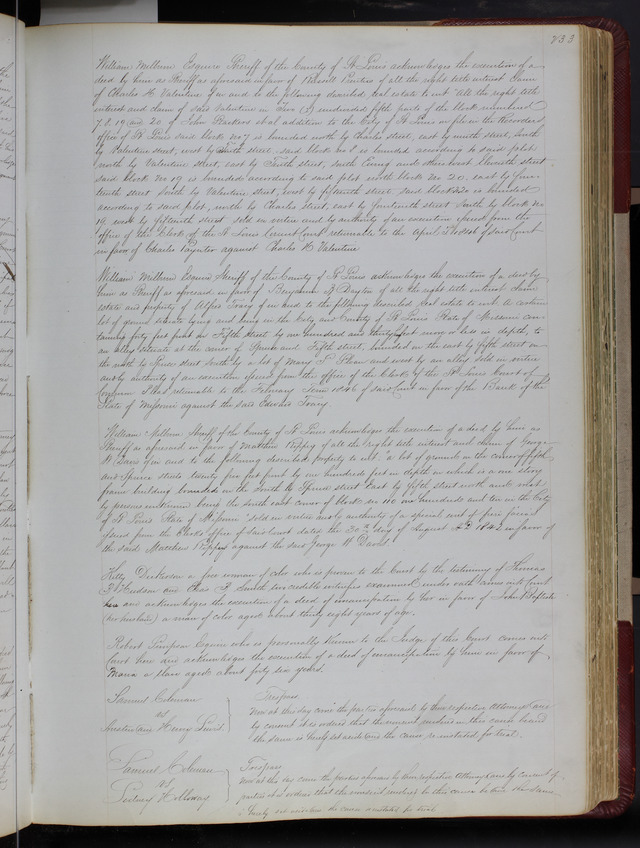 233
William Milburn Esquire Sheriff of the County of St Louis acknowledges the execution of a
deed by him as Sheriff as aforesaid in favor of of all the right title interest claim
of Charles H Valentine of in and to the following described real estate to wit "All the right title
interest and claim of said Valentine in Two (2) undivided fifth parts of the blocks numbered
7. 8. 19 and 20 of John et al addition to the City of St Louis on file in the Recorders
office of St Louis said block No 7 is bounded north by Charles street, east by ninth street, south
by Valentine street, west by Tenth street. said block no 8 is bounded according to said plat
north by Valentine street, east by Tenth street, south and others west Eleventh street
said block No 19 is bounded according to said plat north block No 20. east by four-
teenth street South by Valentine street, west by fifteenth street said block 20 is bounded
according to said plat, north by Charles street, east by fourteenth street South by block no
19. west by fifteenth street sold in virtue and by authority of an execution issued from the
office of the Clerk of the St Louis Circuit Court returnable to the April T 1846 of said Court
in favor of Charles Paynter against Charles H Valentine
William Milburn Esquire Sheriff of the County of St Louis acknowledges the execution of a deed by
him as Sheriff as aforesaid in favor of Benjamin B Dayton of all the right title interest claim
estate and property of Tracy of in and to the following described real estate to wit. A certain
lot of ground situate lying and being in the City and County of St Louis State of Missouri con-
taining forty feet front on Fifth street by one hundred and thirty feet more or less in depth, to
an alley situate at the corner of Spruce and Fifth street, bounded on the east by fifth street on
the north by Spruce street South by a lot of Mary and west by an alley sold in virtue
and by authority of an execution issued from the office of the Clerk of the St Louis Court of
Common Pleas returnable to the February Term 1846 of said Court in favor of the Bank of the
State of Missouri against the said Edward Tracy.
William Milburn Sheriff of the County of St Louis acknowledges the execution of a deed by him as
Sheriff as aforesaid in favor of Matthew of all the right title interest and claim of George
W Davis of in and to the following described property to wit "a lot of ground on the corner of fifth
and Spruce streets twenty five feet front by one hundred feet in depth on which is a one story
frame building bounded on the South by Spruce street East by fifth street north and west
by persons unknown being the south east corner of block no one hundred and ten in the City
of St Louis State of Missouri sold in virtue and by authority of a special writ of fieri facias
issued from the Clerks office of said Court dated the 30th day of August AD 1842 in favor of
the said Matthew against the said George W Davis.
Kitty Dickerson a free woman of color who is proven to the Court by the testimony of Thomas
Hudson and Chas Smith two credible witnesses examined under oath comes into Court
here and acknowledges the execution of a deed of emancipation by her in favor of John
(her husband) a man of color aged about thirty eight years of age.
Robert Simpson Esquire who is personally known to the Judge of this Court comes into
Court here and acknowledges the execution of a deed of emancipation by him in favor of
Maria a slave aged about forty six years.
Samuel Coleman
vs
and Henry
Trespass
Now at this day come the parties aforesaid by their respective Attorneys and
by consent it is ordered that the nonsuit entered in this cause be and
the same is hereby set aside and the cause reinstated for trial.
Samuel Coleman
vs
Holloway
Trespass
Now at this day come the parties aforesaid by their respective Attorneys and by consent of
parties it is ordered that the nonsuit entered in this cause be and the same
is hereby set aside and the cause reinstated for trial